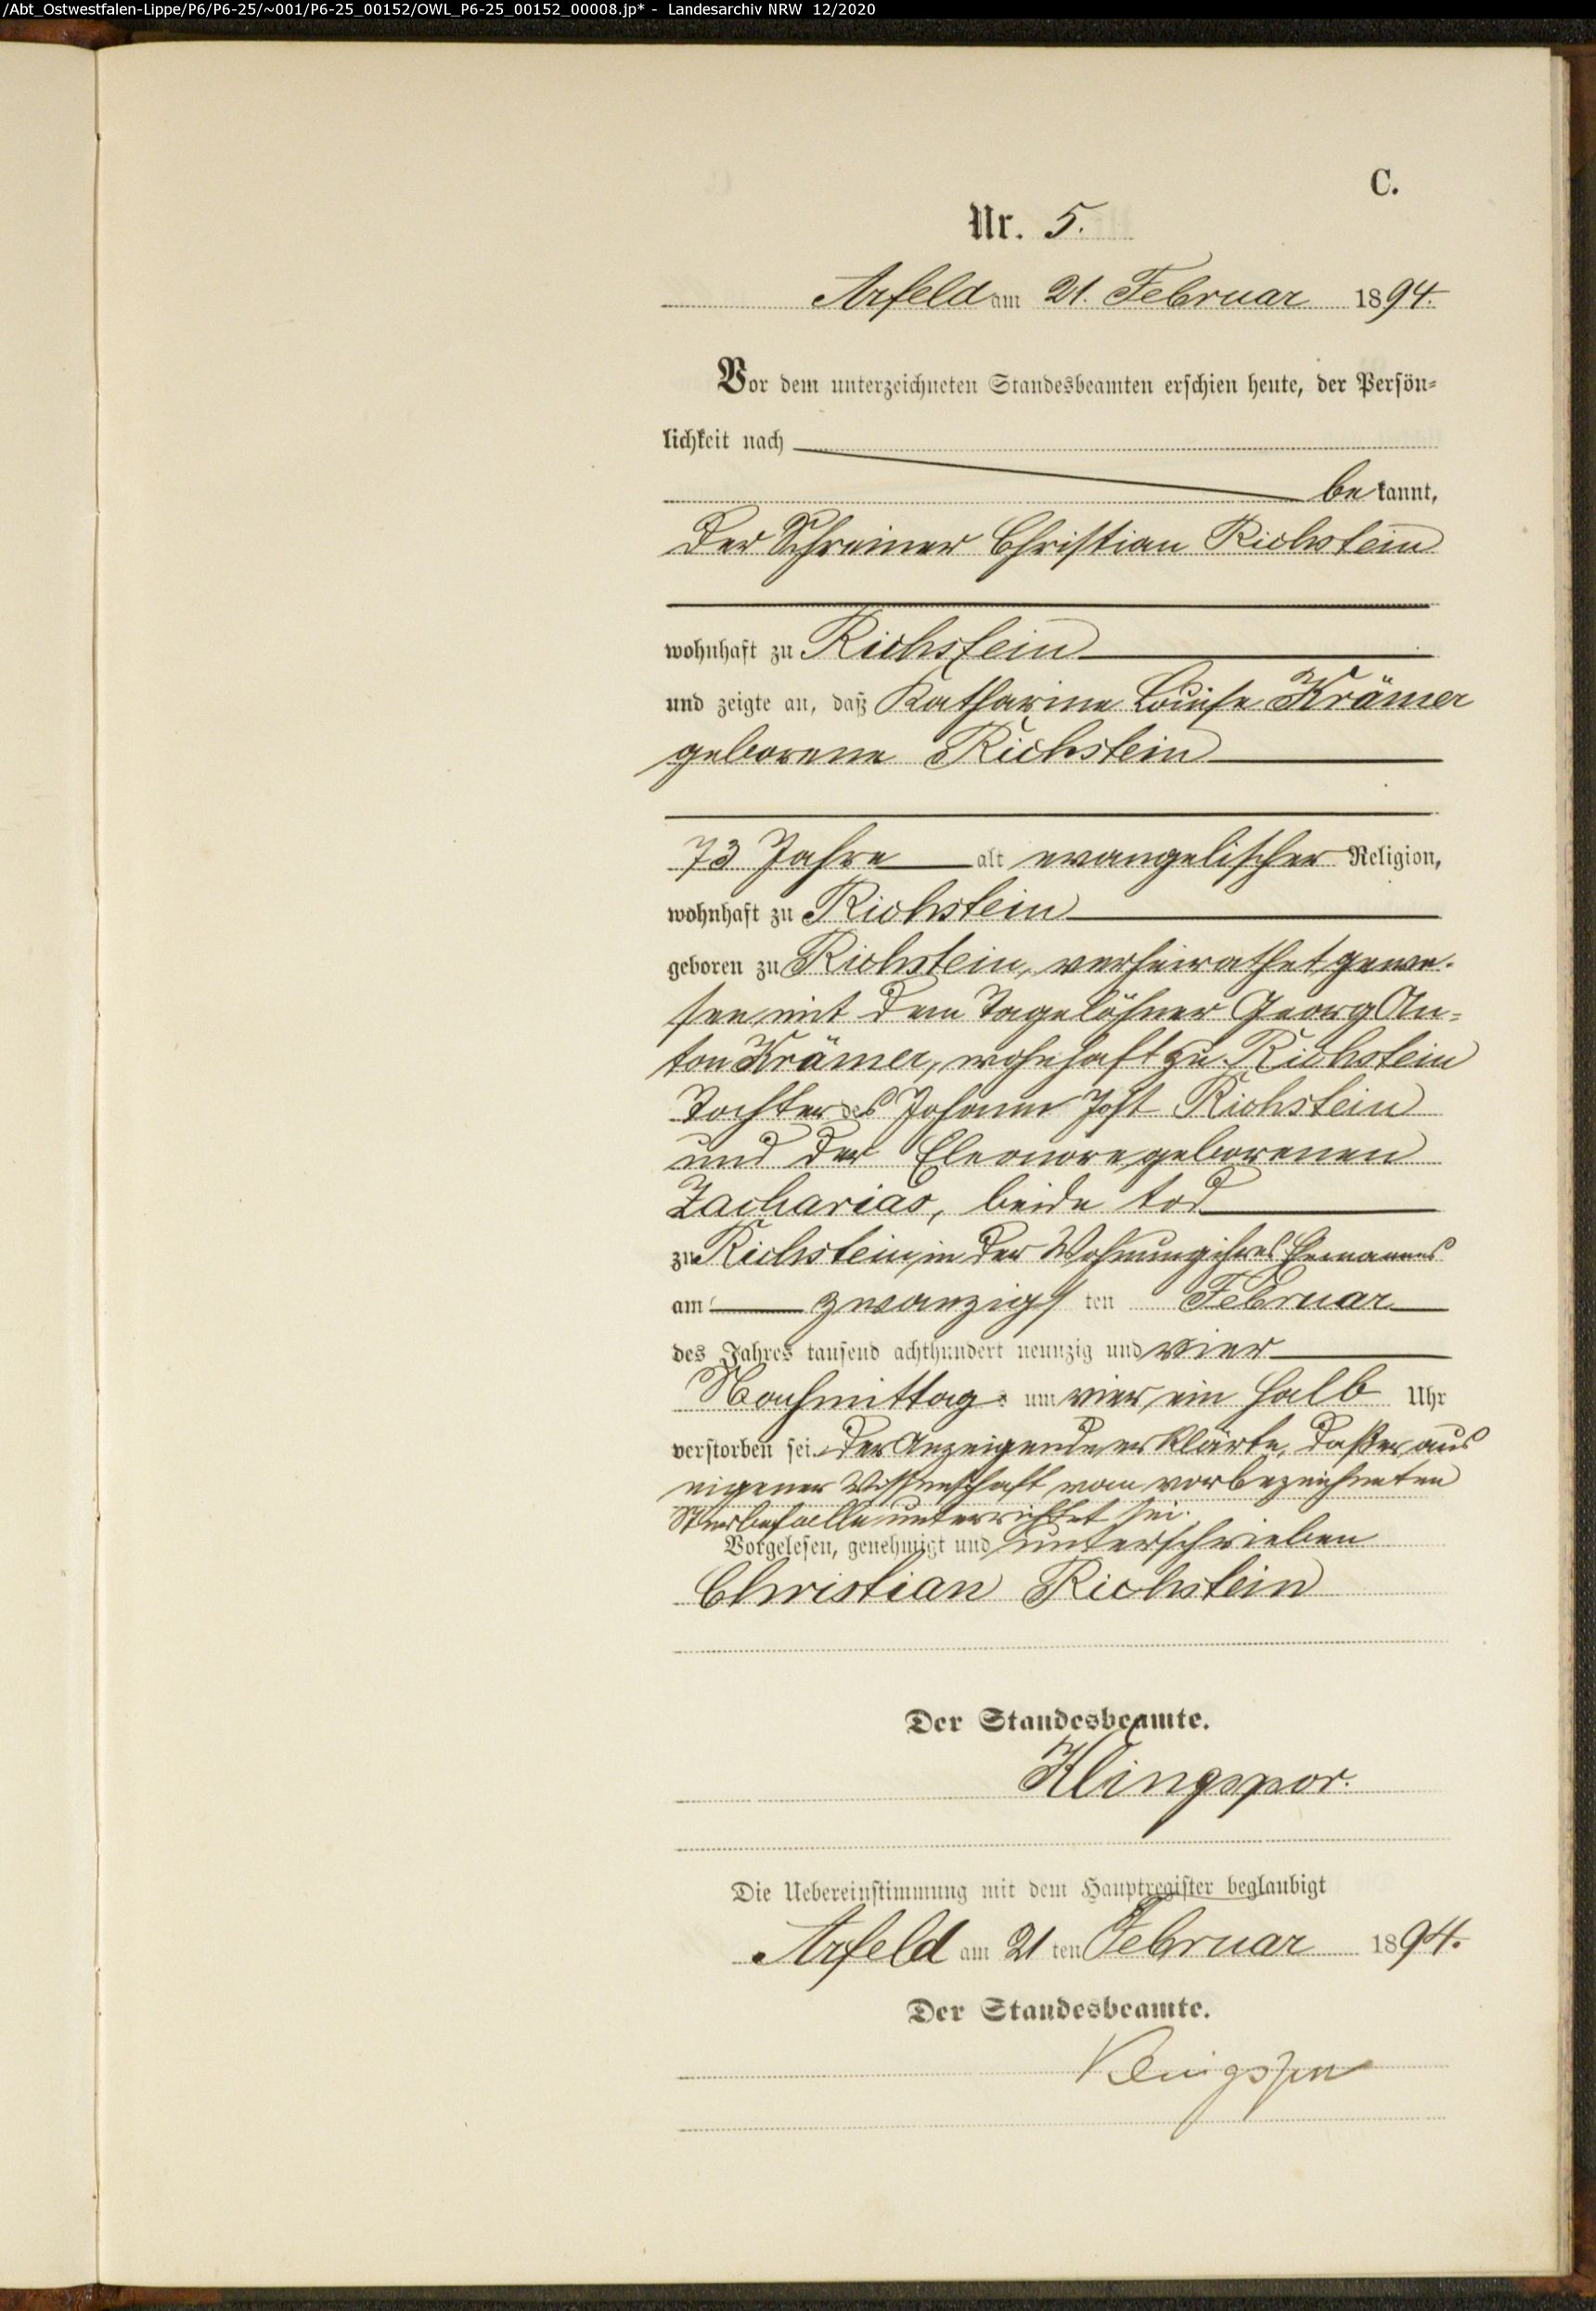 /Abt_Ostwestfalen-Lippe/P6/P6-25/~001/P6-25_00152/OWL_P6-25_00152_00008.jp* - Landesarchiv NRW 12/2020
C.
Nr. 5.
Arfeld am 21. Februar 1894.
Vor dem unterzeichneten Standesbeamten erschien heute, der Persön-
lichkeit nach
bekannt,
der Schreiner Christian Richstein
wohnhaft zu Richstein
und zeigte an, daß Katharine Louise Krämer
geborene Richstein
73 Jahre alt evangelischer Religion,
wohnhaft zu Richstein
geboren zu Richstein, verheirathet gewe-
sen mit dem Tagelöhner Georg An-
ton Krämer, wohnhaft zu Richstein
Tochter des Johann Jost Richstein
und der Eleonore geborenen
Zacharias, beide tod
zu Richstein, in der Wohnung ihres Ehemannes
am zwanzigsten Februar
des Jahres tausend achthundert neunzig und vier
Nachmittags um vier ein halb Uhr
verstorben sei. Der Anzeigende erklärte, daß er aus
eigener Wissenschaft vom vorbezeichneten
Sterbefalle unterrichtet sei.
Vorgelesen, genehmigt und unterschrieben
Christian Richstein
Der Standesbeamte.
Klingspor.
Die Uebereinstimmung mit dem Hauptregister beglaubigt
Arfeld am 21ten Februar 1894.
Der Standesbeamte.
Klingspor